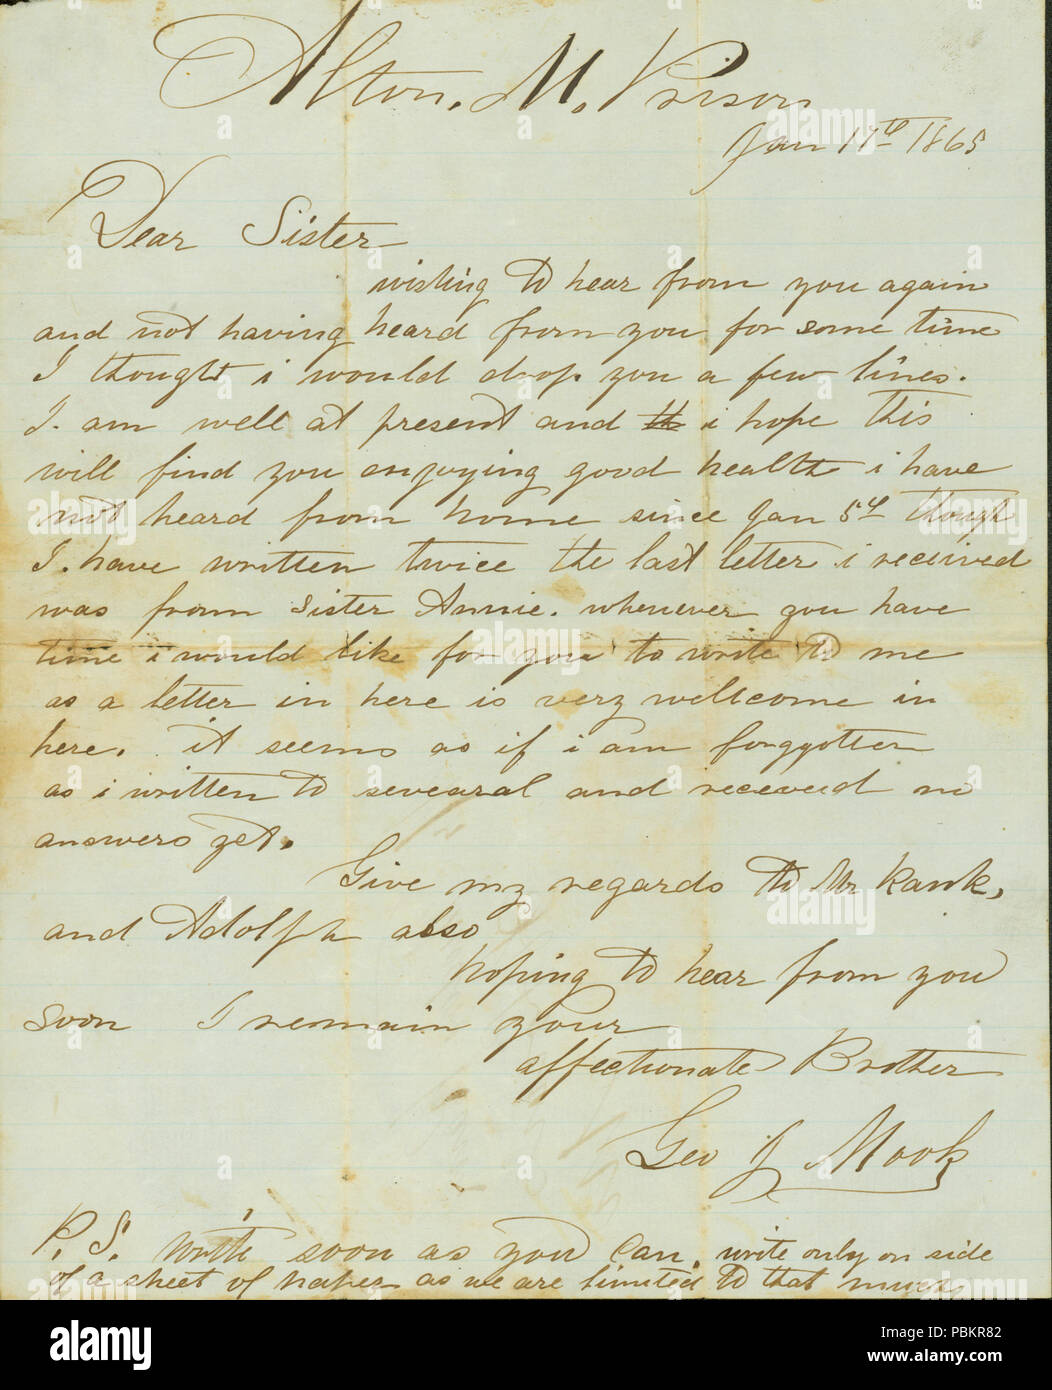 Alton. M. Prison
Jan 17th 1865
Dear Sister
wishing to hear from you again
and not having heard from you for some time
I thought i would drop you a few lines.
I. am well at present and th i hope this
will find you enjoying good health i have
not heard from home since Jan 5th though
I. have written twice the last letter i received
was from Sister Annie. whenever you have
time i would like for you to write to me
as a letter in here is very wellcome in
here. it seems as if i am forggotten
as i written to sevearal and receved no
answers yet.
Give my regards to Mr Kauk,
and Adolph also
hoping to hear from you
soon I remain your
affectionate Brother
Geo J Mook
P. S. write soon as you can. write only on side
of a sheet of paper as we are limited to that much
alamy
alamy stock photo
PBKR82
www.alamy.com